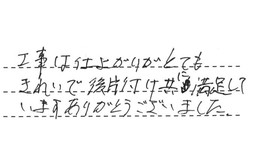 工事は仕上がりがとても
きれいで後片付け共に満足して
いますありがとうございました。